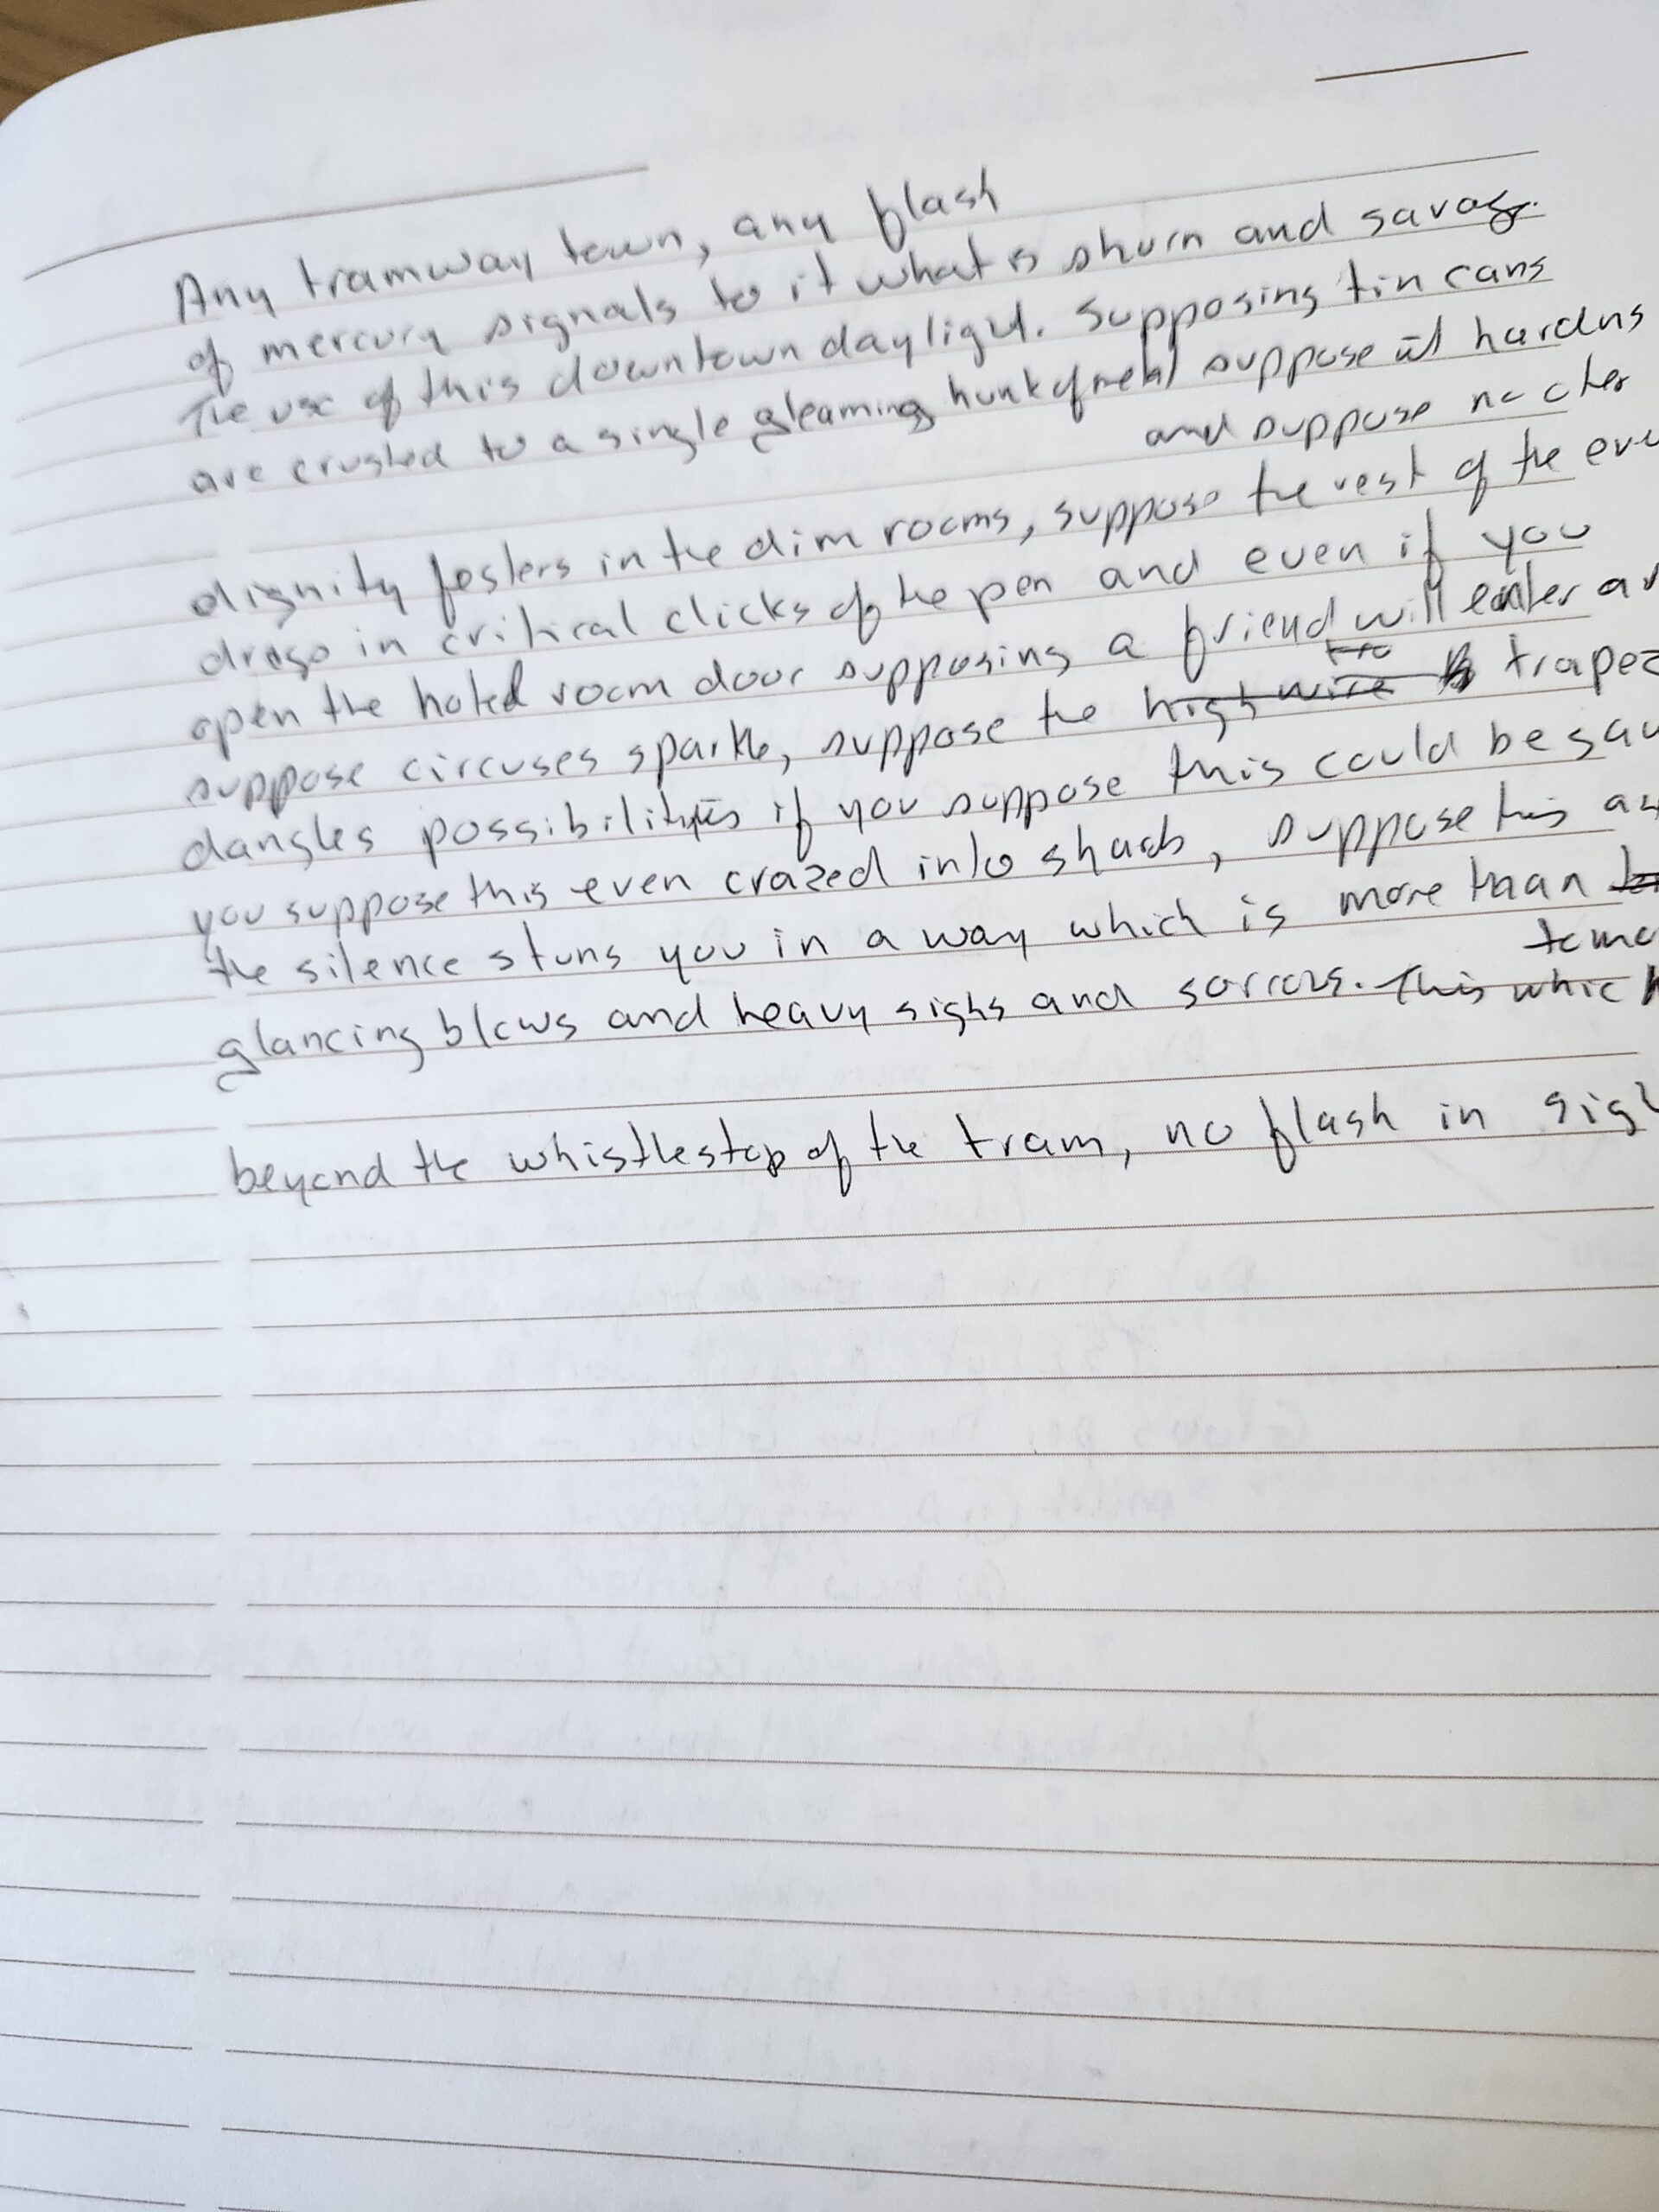 Any tramway town, any flash
of mercury signals to it what is shurn and savage.
The use of this downtown daylight. Supposing tin cans
are crushed to a single gleaming hunk of metal suppose it hardns
and suppose no other
dignity fosters in the dim rooms, suppose the rest of the
drags in critical clicks of the pen and even if you
open the hotel room door supposing a friend will enter
suppose circuses sparkle, suppose the high wire
dangles possibilities if you suppose this could be
you suppose this even crazed into shards, suppose this
the silence stuns you in a way which is more than
glancing blows and heavy sighs and sorrows. This which
beyond the whistlestop of the tram, no flash in